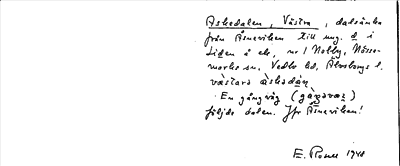 Askedalen, Västra, dalsänka
från Åmeviken till ung. d i
Liden å ek. nr 1 Notby, Nösse-
marks sn, Vedbo hd, Älvsborgs l.
vàstara àskadáņ
En gångväg (gàŋavæ̨)
följde dalen. Jfr Åmeviken!
E. Rosell 1940